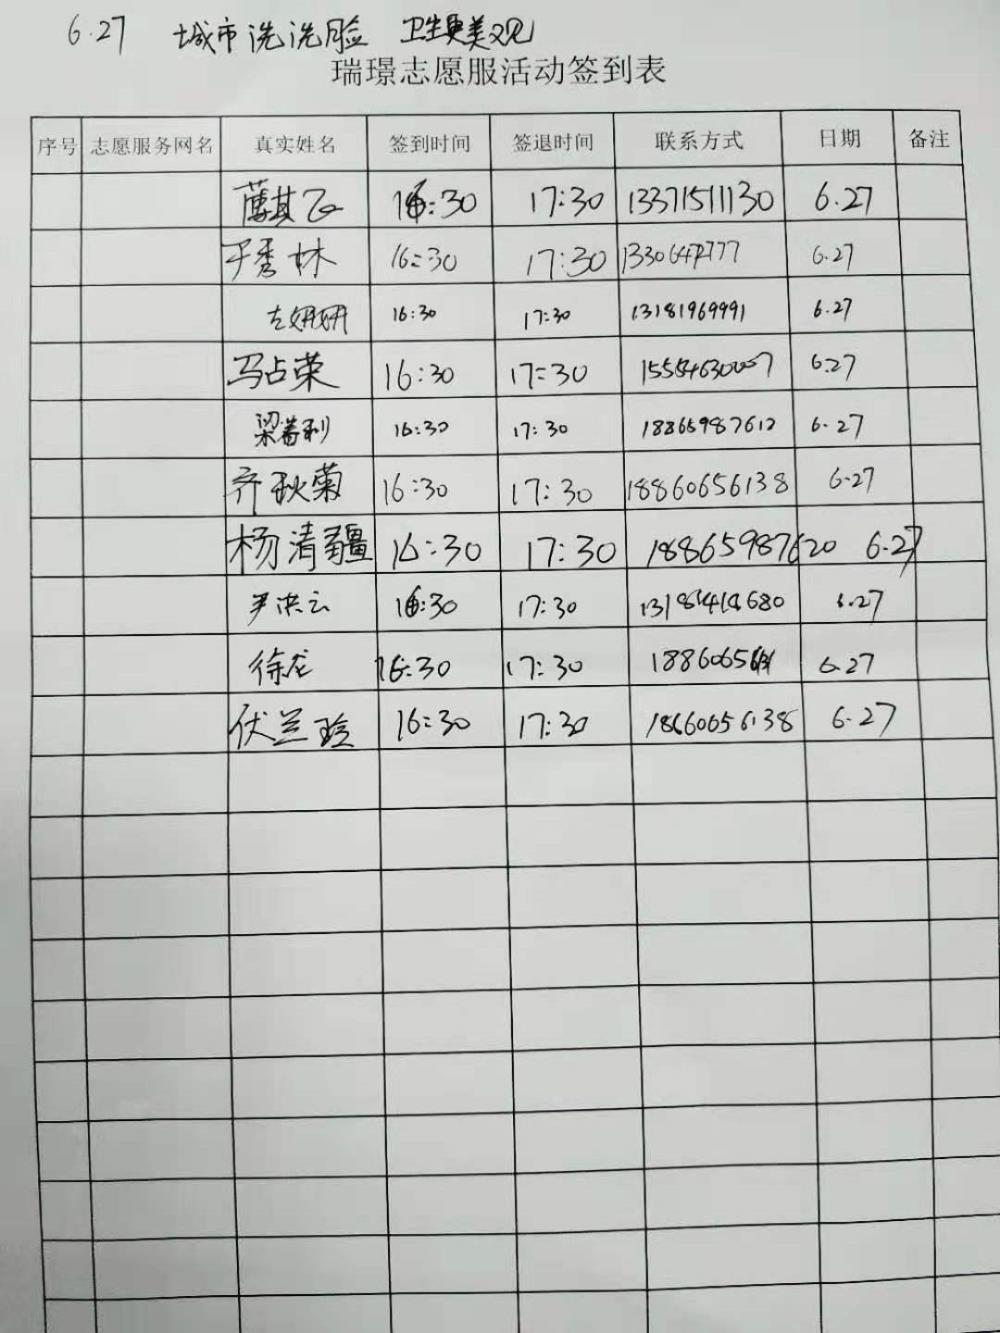 6.27 城市洗洗脸 卫生更美观
瑞璟志愿服活动签到表
序号 志愿服务网名 真实姓名 签到时间 签退时间 联系方式 日期 备注
薄其飞 16:30 17:30 13371511130 6.27
于秀林 16:30 17:30 6.27
左妍妍 16:30 17:30 13181969991 6.27
马占荣 16:30 17:30 15554630007 6.27
梁善利 16:30 17:30 18865987612 6.27
齐秋菊 16:30 17:30 18860656138 6.27
杨清疆 16:30 17:30 18865987620 6.27
尹洪云 16:30 17:30 6.27
徐龙 16:30 17:30 6.27
伏兰玲 16:30 17:30 18660656138 6.27